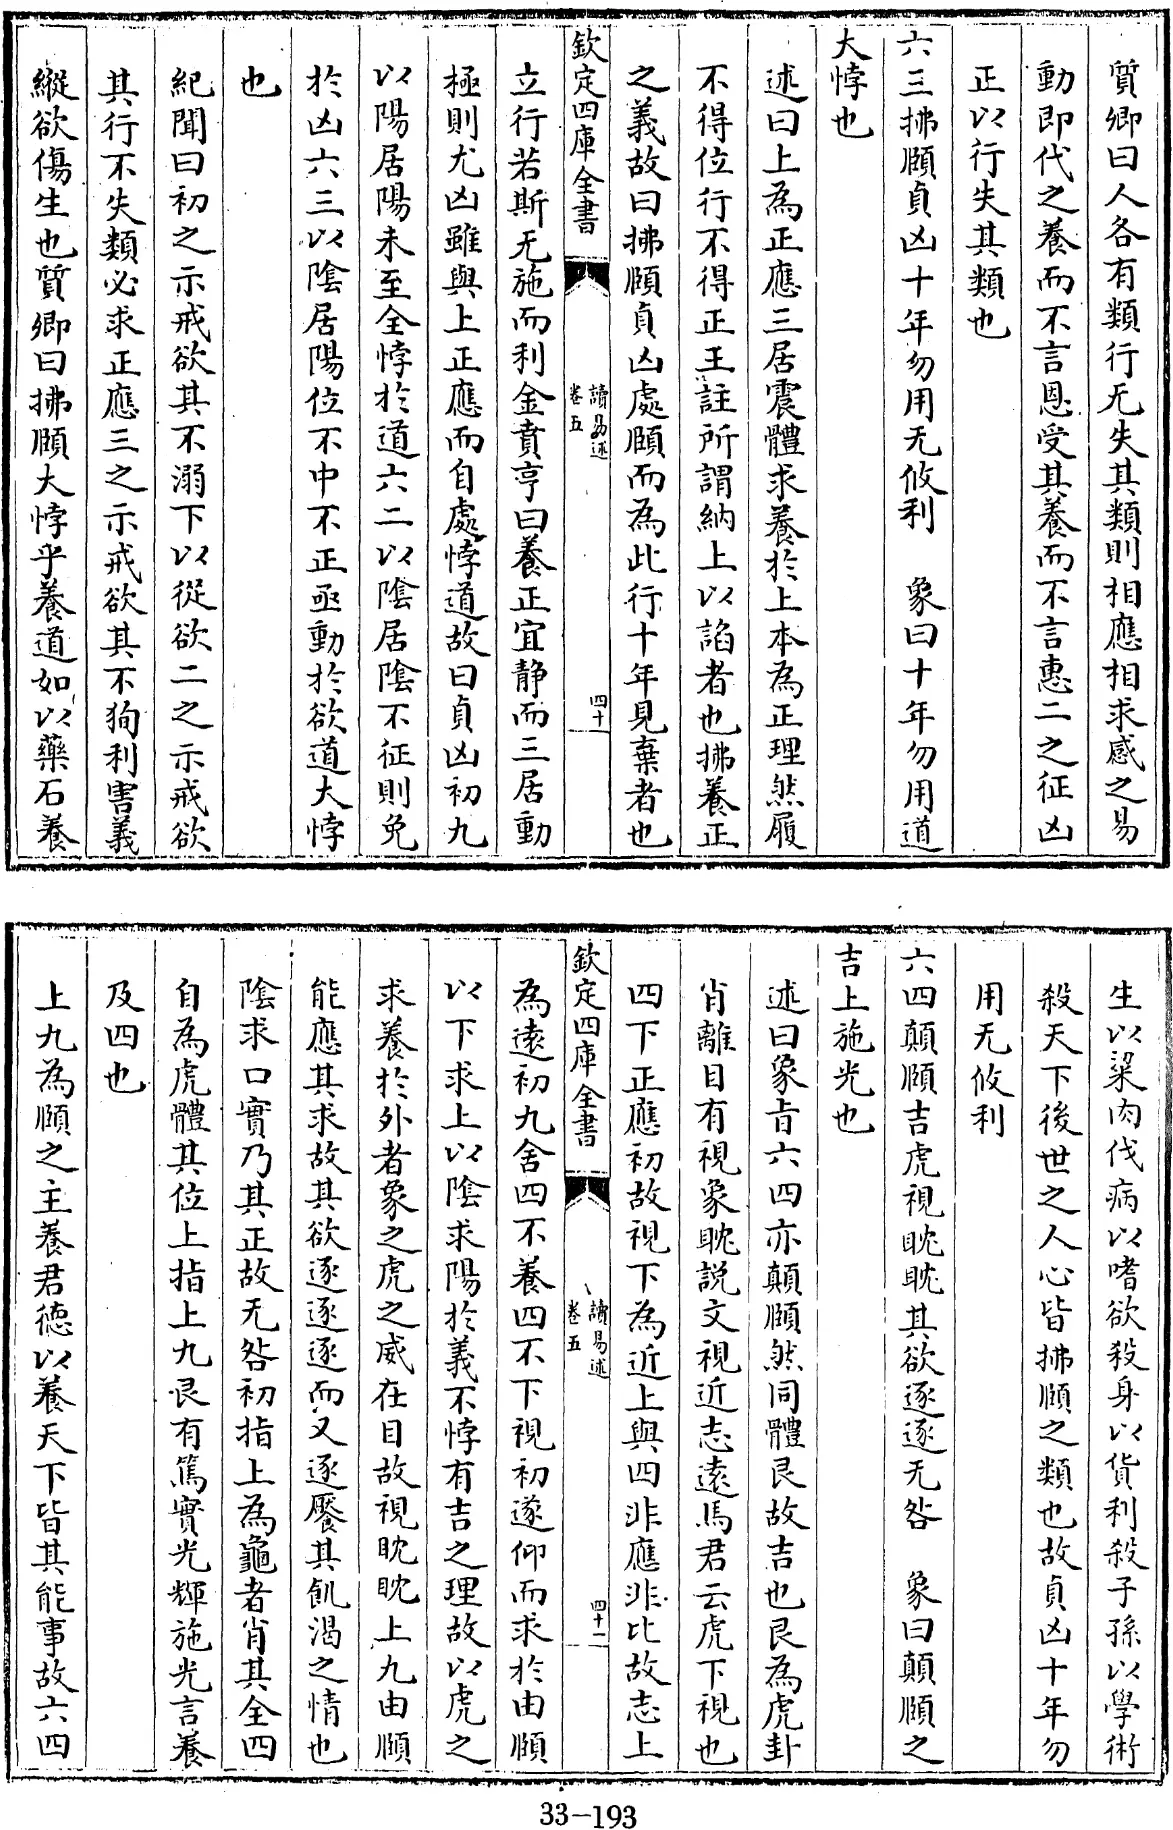 質卿曰人各有類行无失其類則相應相求感之易
動即代之養而不言恩受其養而不言惠二之征凶
正以行失其類也
六三拂頤貞凶十年勿用无攸利　象曰十年勿用道
大悖也
述曰上為正應三居震體求養於上本為正理然履
不得位行不得正王註所謂納上以諂者也拂養正
之義故曰拂頤貞凶處頤而為此行十年見棄者也
欽定四庫全書
讀易述
卷五
四十一
立行若斯无施而利金賁亨曰養正宜静而三居動
極則尤凶雖與上正應而自處悖道故曰貞凶初九
以陽居陽未至全悖於道六二以陰居陰不征則免
於凶六三以陰居陽位不中不正亟動於欲道大悖
也
紀聞曰初之示戒欲其不溺下以從欲二之示戒欲
其行不失類必求正應三之示戒欲其不狥利害義
縱欲傷生也質卿曰拂頤大悖乎養道如以藥石養
生以粱肉伐病以嗜欲殺身以貨利殺子孫以學術
殺天下後世之人心皆拂頤之類也故貞凶十年勿
用无攸利
六四顛頤吉虎視眈眈其欲逐逐无咎　象曰顛頤之
吉上施光也
述曰象旨六四亦顛頤然同體艮故吉也艮為虎卦
肖離目有視象眈説文視近志遠馬君云虎下視也
四下正應初故視下為近上與四非應非比故志上
欽定四庫全書
讀易述
卷五
四十二
為遠初九舍四不養四不下視初遂仰而求於由頤
以下求上以陰求陽於義不悖有吉之理故以虎之
求養於外者象之虎之威在目故視眈眈上九由頤
能應其求故其欲逐逐逐而又逐饜其飢渴之情也
陰求口實乃其正故无咎初指上為龜者肖其全四
自為虎體其位上指上九艮有篤實光輝施光言養
及四也
上九為頤之主養君德以養天下皆其能事故六四
33-193